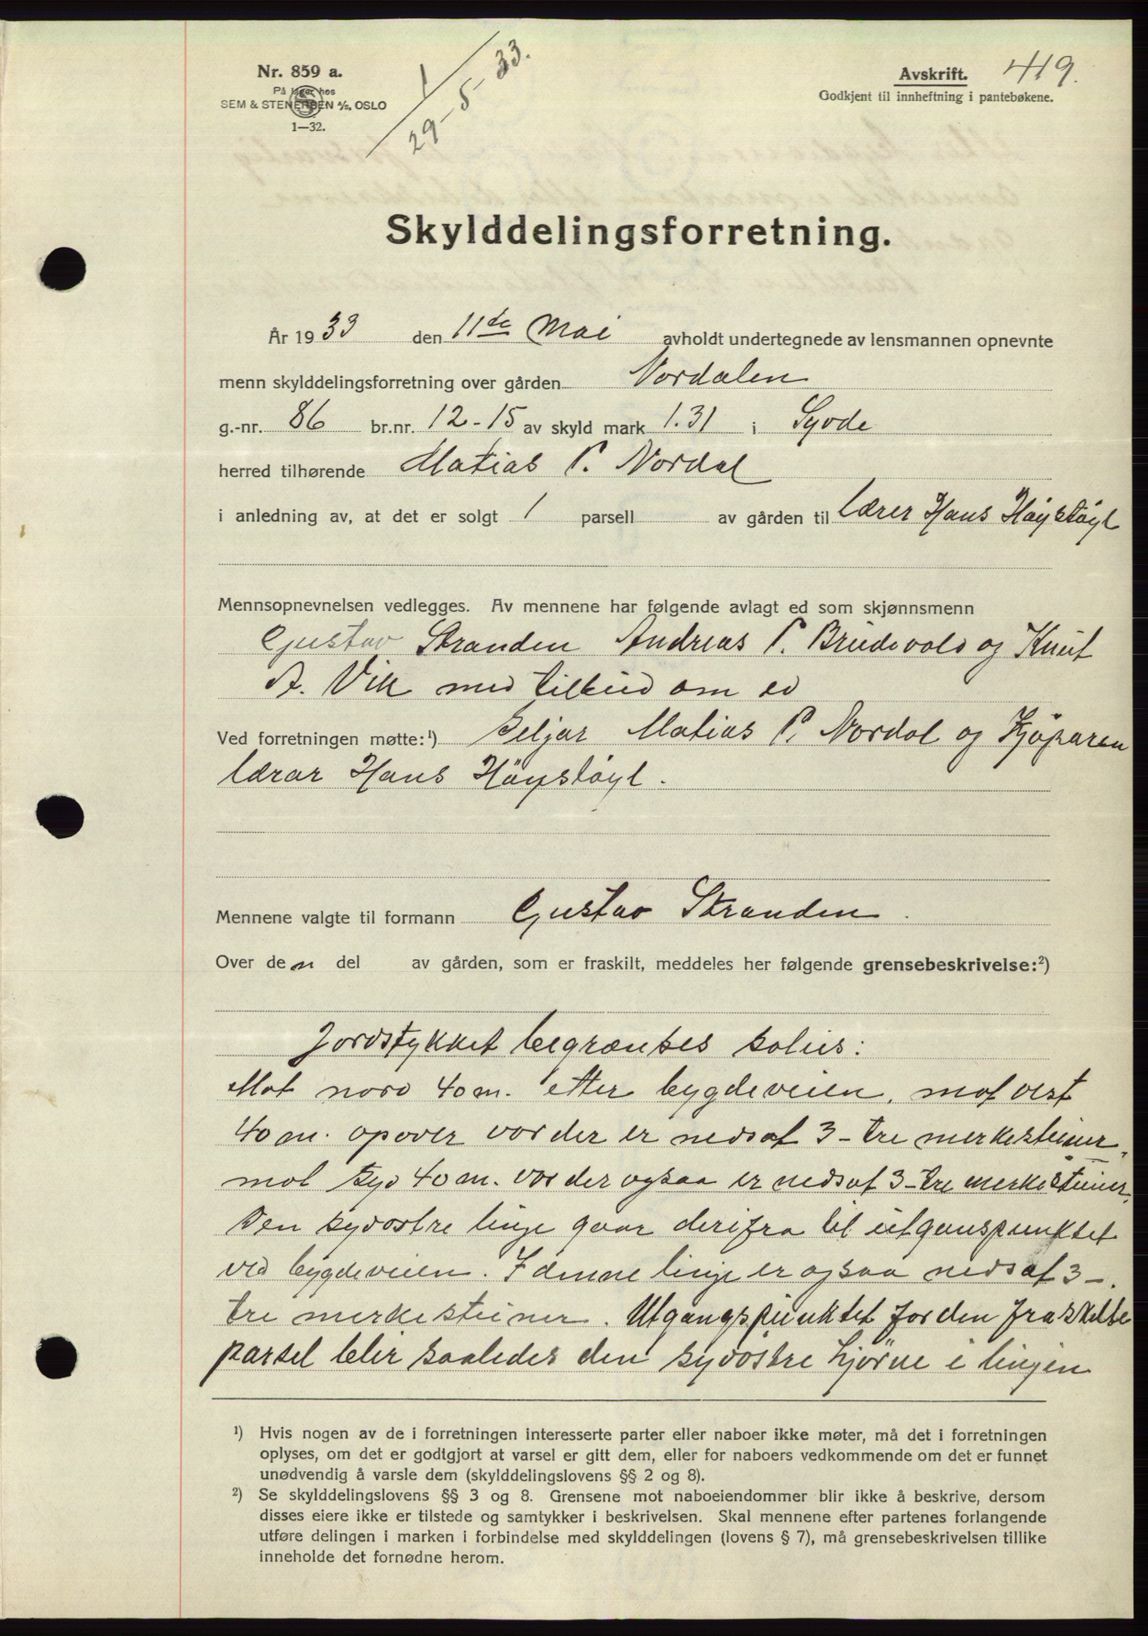 Nr. 859 a.
På lager hos
SEM & STENERSEN A/S, OSLO
1—32.
1
29-5-33.
Avskrift. 419.
Godkjent til innheftning i pantebøkene.
Skylddelingsforretning.
År 1933 den 11te Mai avholdt undertegnede av lensmannen opnevnte
menn skylddelingsforretning over gården Nordalen
g.-nr. 86 br.nr. 12-15 av skyld mark 1.31 i Syvde
herred tilhørende Matias P. Nordal
i anledning av, at det er solgt 1 parsell av gården til Lærer Hans Høystøyl
Mennsopnevnelsen vedlegges. Av mennene har følgende avlagt ed som skjønnsmenn
Gustav Stranden Andreas P. Brudevold og Knut
A. Vik med tilbud om ed
Ved forretningen møtte:¹) Seljar Matias P. Nordal og Kjøparen
lærar Hans Høystøyl.
Mennene valgte til formann Gustav Stranden.
Over den del av gården, som er fraskilt, meddeles her følgende grensebeskrivelse:²)
Jordstykket begrænses solies:
Mot nord 40 m. etter bygdeveien, mot vest
40 m. opover vor der er nedsat 3-tre merkesteiner,
mot syd 40 m. vor der ogsaa er nedsat 3-tre merkesteiner,
Den sydostre linje gaar derifra til utganspunktet
ved bygdeveien. I denne linje er ogsaa nedsat 3-
tre merkesteiner. Utgangspunktet for den fraskelte
parsel blir saaledes den sydøstre hjørne i linjen
¹) Hvis nogen av de i forretningen interesserte parter eller naboer ikke møter, må det i forretningen
oplyses, om det er godtgjort at varsel er gitt dem, eller for naboers vedkommende om det er funnet
unødvendig å varsle dem (skylddelingslovens §§ 2 og 8).
²) Se skylddelingslovens §§ 3 og 8. Grensene mot naboeiendommer blir ikke å beskrive, dersom
disses eiere ikke er tilstede og samtykker i beskrivelsen. Skal mennene efter partenes forlangende
utføre delingen i marken i forbindelse med skylddelingen (lovens § 7), må grensebeskrivelsen tillike
inneholde det fornødne herom.